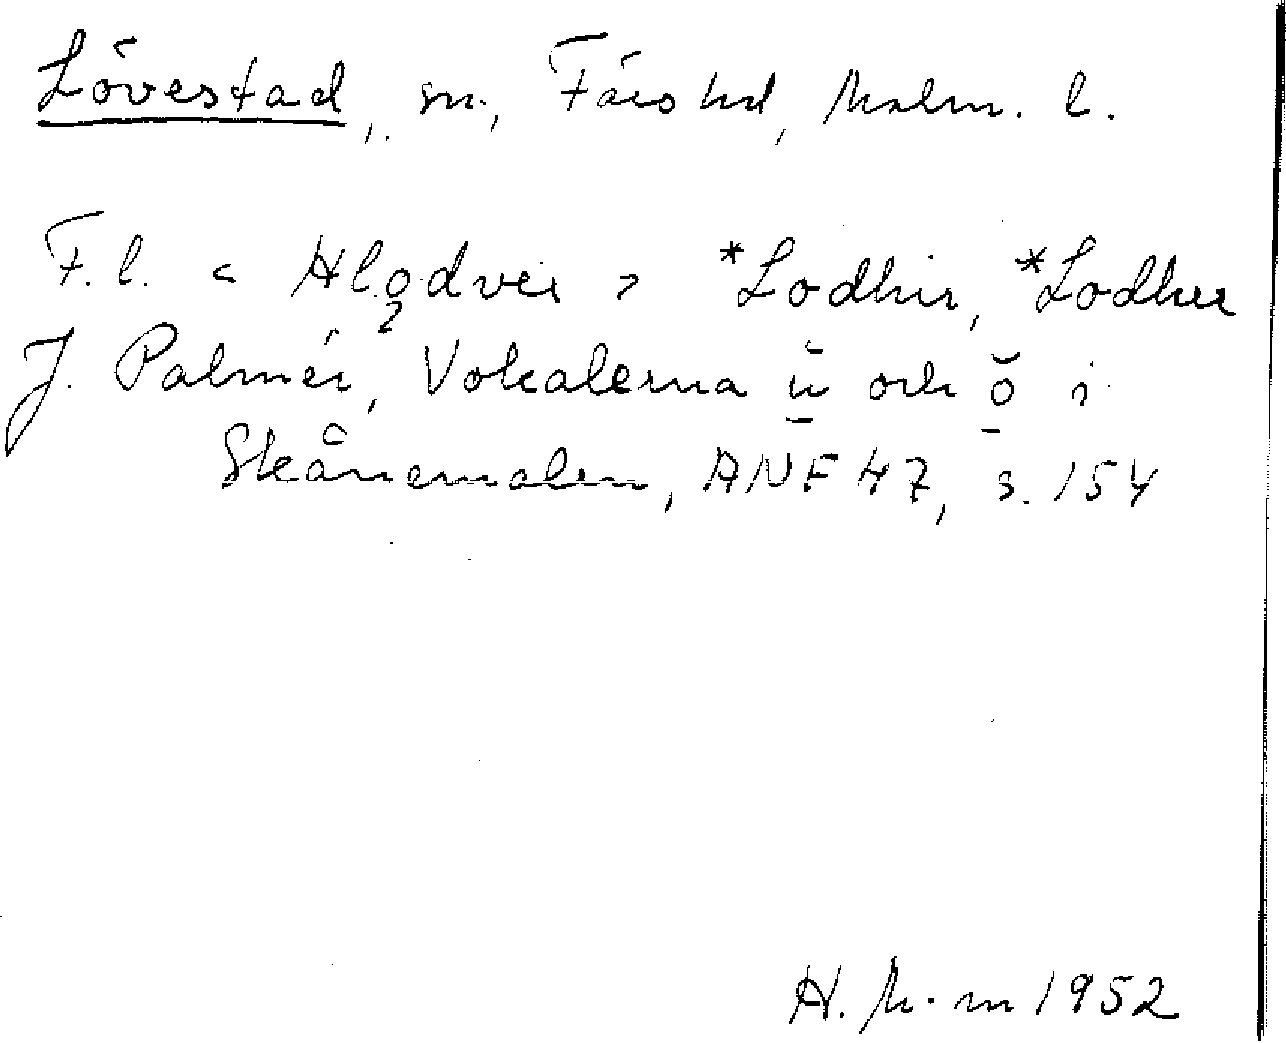 Lövestad, sn, Färs hd, Malm. l.
F.l. < Hlǫdvér > *Lodhir, *Lodher
J. Palmér, Vokalerna ŭ och ŏ i
Skånemålen, ANF 47, s. 154
H. M-m 1952